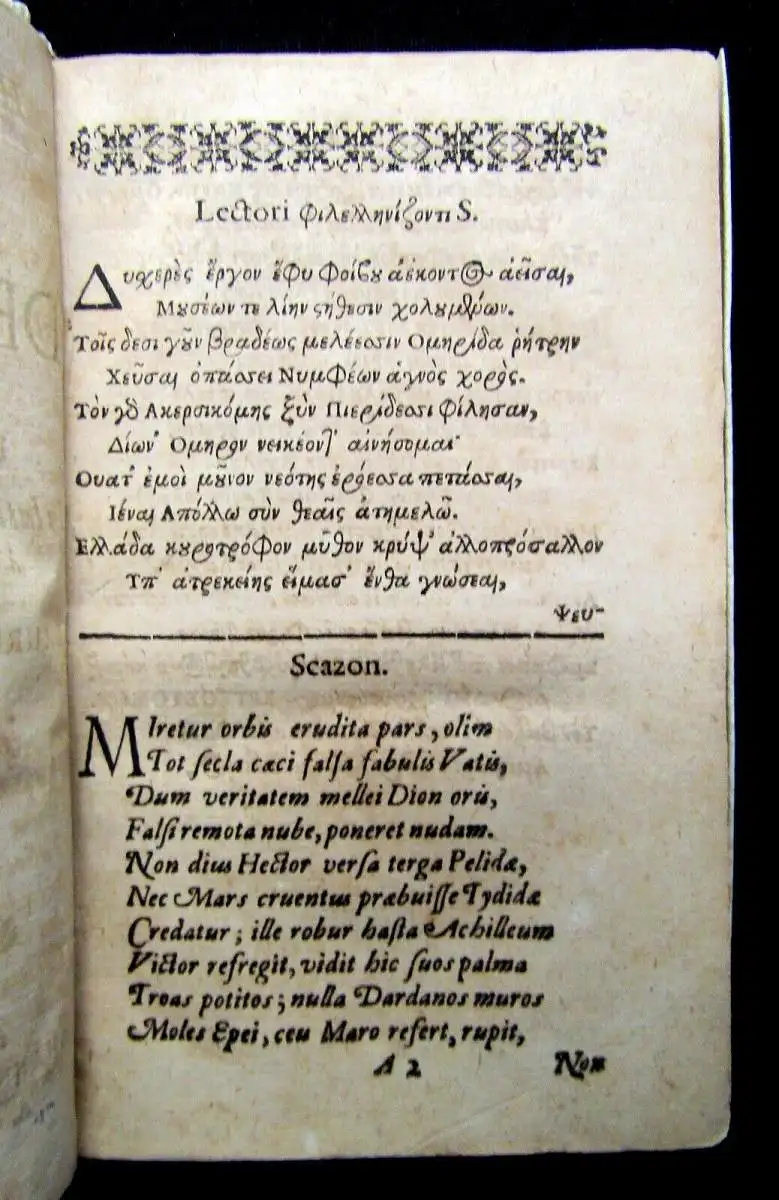 Lectori φιλελληνίζοντι S.
Δυχερὲς ἔργον ἔφυ Φοίβου ἀέκοντος ἀεῖσαι,
Μουσέων τε λίην στήθεσιν χολουμένων.
Τοῖς δεσι γοῦν βραδέως μελέεσσιν Ομηρίδα ῥήτρην
Χεῦσαι ὀπάσσει Νυμφέων ἁγνὸς χορός.
Τὸν γὸ Ακερσικόμης ξὺν Πιερίδεσσι φίλησαν,
Δίων' Ομηρον νεικέοντ' αἰνήσομαι·
Ουατ' ἐμοὶ μοῦνον νεότης ἐρόεσσα πετάσσαι,
Ιέναι Απόλλω σὺν θεαῖς ἀτημελῶ.
Ελλάδα κουροτρόφον μῦθον κρύψ' ἀλλοπρόσαλλον
Υπ' ἀτρεκείης εἵμασ' ἔνθα γνώσεαι,
Ψευ-
Scazon.
MIretur orbis erudita pars, olim
Tot secla cæci falsa fabulis Vatis,
Dum veritatem mellei Dion oris,
Falsi remota nube, poneret nudam.
Non dius Hector versa terga Pelidæ,
Nec Mars cruentus præbuisse Tydidæ
Credatur; ille robur hasta Achilleum
Victor refregit, vidit hic suos palma
Troas potitos; nulla Dardanos muros
Moles Epei, ceu Maro refert, rupit,
A 2 Non